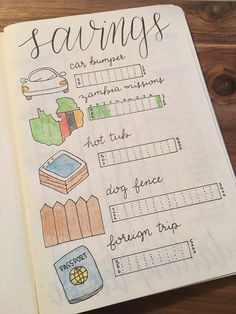 savings
car bumper
zambia missions
hot tub
dog fence
foreign trip
PASSPORT